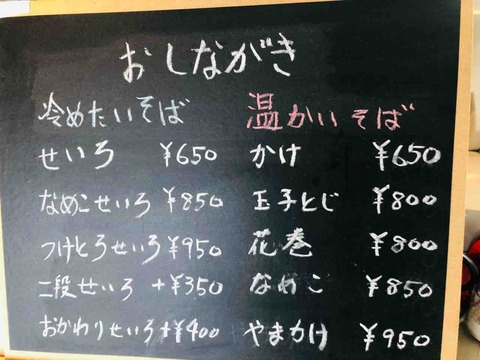 おしながき
冷めたいそば
せいろ ¥650
なめこせいろ ¥850
つけとろせいろ ¥950
二段せいろ +¥350
おかわりせいろ +¥400
温かいそば
かけ ¥650
玉子とじ ¥800
花巻 ¥800
なめこ ¥850
やまかけ ¥950